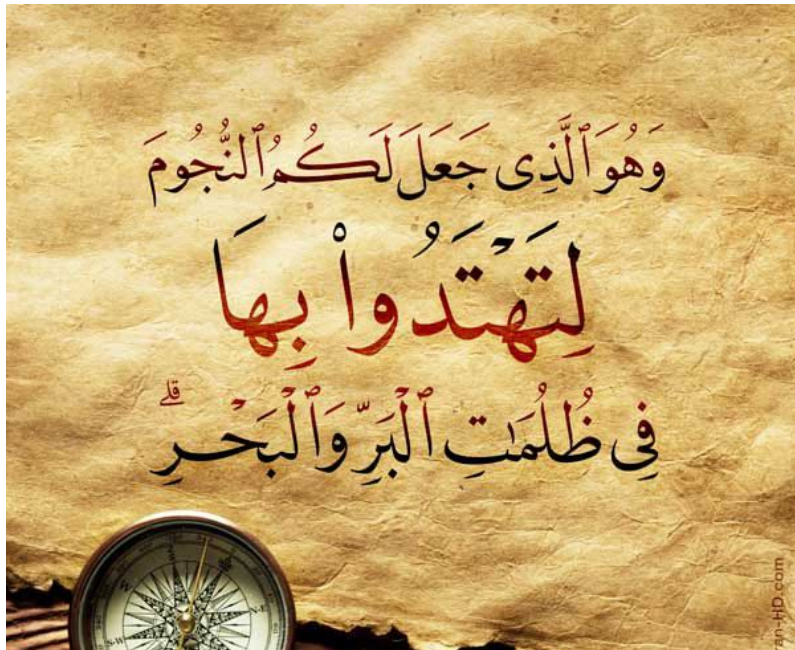 وَهُوَ ٱلَّذِى جَعَلَ لَكُمُ ٱلنُّجُومَ
لِتَهْتَدُوا۟ بِهَا
فِى ظُلُمَٰتِ ٱلْبَرِّ وَٱلْبَحْرِ ۗ
an-HD.com
N-E
S-W